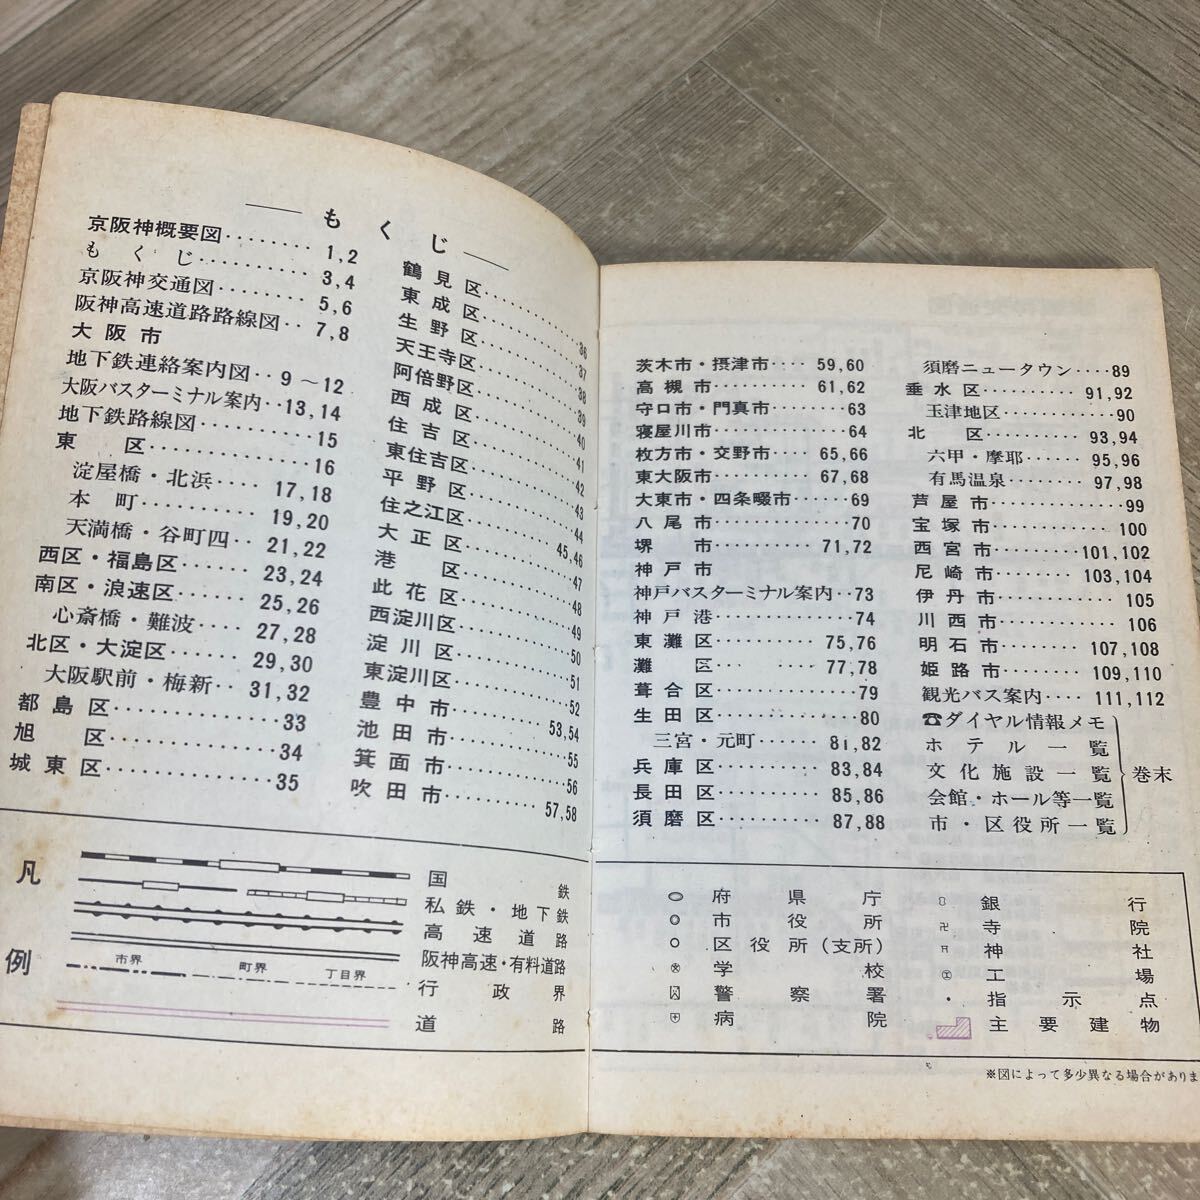 もくじ
京阪神概要図‥‥‥‥1,2
もくじ‥‥‥‥‥3,4
京阪神交通図‥‥‥‥5,6
阪神高速道路路線図‥7,8
大阪市
地下鉄連絡案内図‥9～12
大阪バスターミナル案内‥13,14
地下鉄路線図‥‥‥‥15
東区‥‥‥‥‥‥16
淀屋橋・北浜‥‥‥17,18
本町‥‥‥‥‥19,20
天満橋・谷町四‥‥21,22
西区・福島区‥‥‥‥23,24
南区・浪速区‥‥‥‥25,26
心斎橋・難波‥‥‥27,28
北区・大淀区‥‥‥‥29,30
大阪駅前・梅新‥31,32
都島区‥‥‥‥‥33
旭区‥‥‥‥‥34
城東区‥‥‥‥‥35
鶴見区‥‥‥‥‥36
東成区‥‥‥‥‥37
生野区‥‥‥‥‥38
天王寺区‥‥‥‥‥39
阿倍野区‥‥‥‥‥40
西成区‥‥‥‥‥41
住吉区‥‥‥‥‥42
東住吉区‥‥‥‥‥43
平野区‥‥‥‥‥44
住之江区‥‥‥‥45,46
大正区‥‥‥‥‥47
港区‥‥‥‥‥48
此花区‥‥‥‥‥49
西淀川区‥‥‥‥‥50
淀川区‥‥‥‥‥51
東淀川区‥‥‥‥‥52
豊中市‥‥‥‥53,54
池田市‥‥‥‥‥55
箕面市‥‥‥‥‥56
吹田市‥‥‥‥57,58
茨木市・摂津市‥‥59,60
高槻市‥‥‥‥‥61,62
守口市・門真市‥‥‥63
寝屋川市‥‥‥‥‥64
枚方市・交野市‥‥65,66
東大阪市‥‥‥‥67,68
大東市・四条畷市‥‥69
八尾市‥‥‥‥‥70
堺市‥‥‥‥‥71,72
神戸市
神戸バスターミナル案内‥73
神戸港‥‥‥‥‥74
東灘区‥‥‥‥‥75,76
灘区‥‥‥‥‥77,78
葺合区‥‥‥‥‥79
生田区‥‥‥‥‥80
三宮・元町‥‥‥81,82
兵庫区‥‥‥‥‥83,84
長田区‥‥‥‥‥85,86
須磨区‥‥‥‥‥87,88
須磨ニュータウン‥‥89
垂水区‥‥‥‥‥91,92
玉津地区‥‥‥‥‥90
北区‥‥‥‥‥93,94
六甲・摩耶‥‥‥95,96
有馬温泉‥‥‥‥97,98
芦屋市‥‥‥‥‥99
宝塚市‥‥‥‥‥100
西宮市‥‥‥‥‥101,102
尼崎市‥‥‥‥‥103,104
伊丹市‥‥‥‥‥105
川西市‥‥‥‥‥106
明石市‥‥‥‥‥107,108
姫路市‥‥‥‥‥109,110
観光バス案内‥‥‥111,112
☎ダイヤル情報メモ
ホテル一覧
文化施設一覧
会館・ホール等一覧
市・区役所一覧
巻末
凡例
国鉄
私鉄・地下鉄
高速道路
阪神高速・有料道路
市界 町界 丁目界 行政界
道路
府県庁
市役所
区役所(支所)
学校
警察署
病院
銀行
寺院
神社
工場
指示点
主要建物
※図によって多少異なる場合がありま